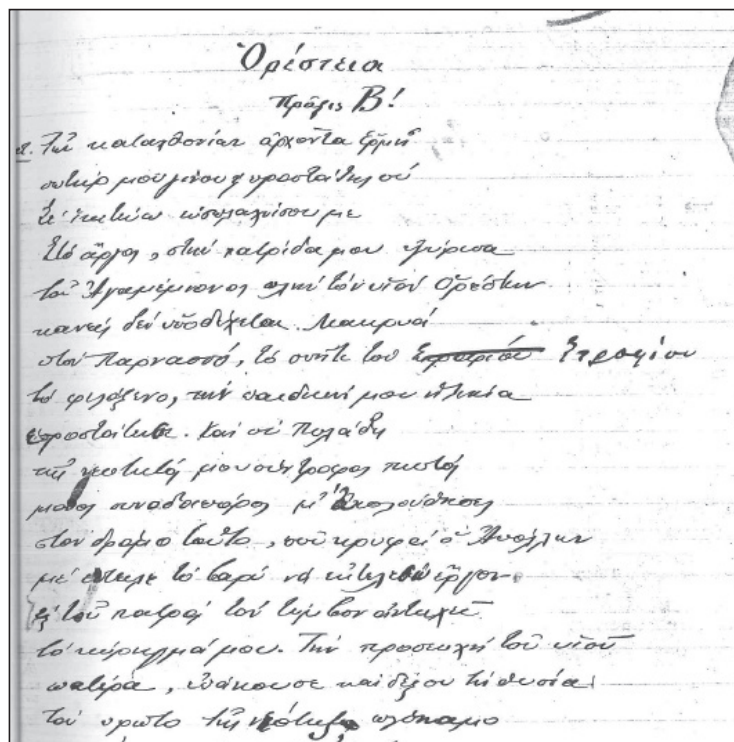 Ὀρέστεια
Πρᾶξις Β!
Τῶν καταχθονίων ἄρχοντα Ἑρμῆ
σωτήρ μου γίνου προστάτης σύ
σὲ ἱκετεύω με
Στὸ Ἄργος, στὴν πατρίδα μου γύρισα
τοῦ Ἀγαμέμνονος πλὴν τὸν υἱὸν Ὀρέστην
κανεὶς δὲν ὑποδέχεται. Μακρυά
στὸν Παρνασσό, τὸ σπῆτι τοῦ Στροφίου
τὸ φιλόξενο, τὴν παιδική μου ἡλικία
ἐπροστάτευσε. Καὶ σὺ Πυλάδη
τῆς νεότητός μου σύντροφος πιστός
μόνος συνοδοιπόρος μ' ἀκολούθησες
στον δρόμο τοῦτο, ποῦ κρυφά ὁ Ἀπόλλων
μὲ ἔστειλε τὸ βαρὺ νὰ ἐκτελέσω ἔργον.
τοῦ πατρός τὸν τύμβον ἀντηχεῖ
τὸ κήρυγμά μου. Τὴν προσευχή τοῦ υἱοῦ
πατέρα, ὑπάκουσε καὶ δέξου τὴ θυσία
τὸν πρῶτο τῆς νεότητος πλόκαμο